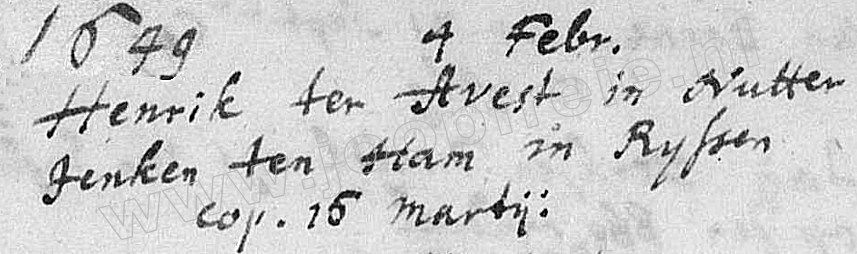 1649 4 Febr.
Henrik ter Avest in Nutter
Jenken ten Ham in Ryssen
cop. 16 Martij:
www.joopheie.nl